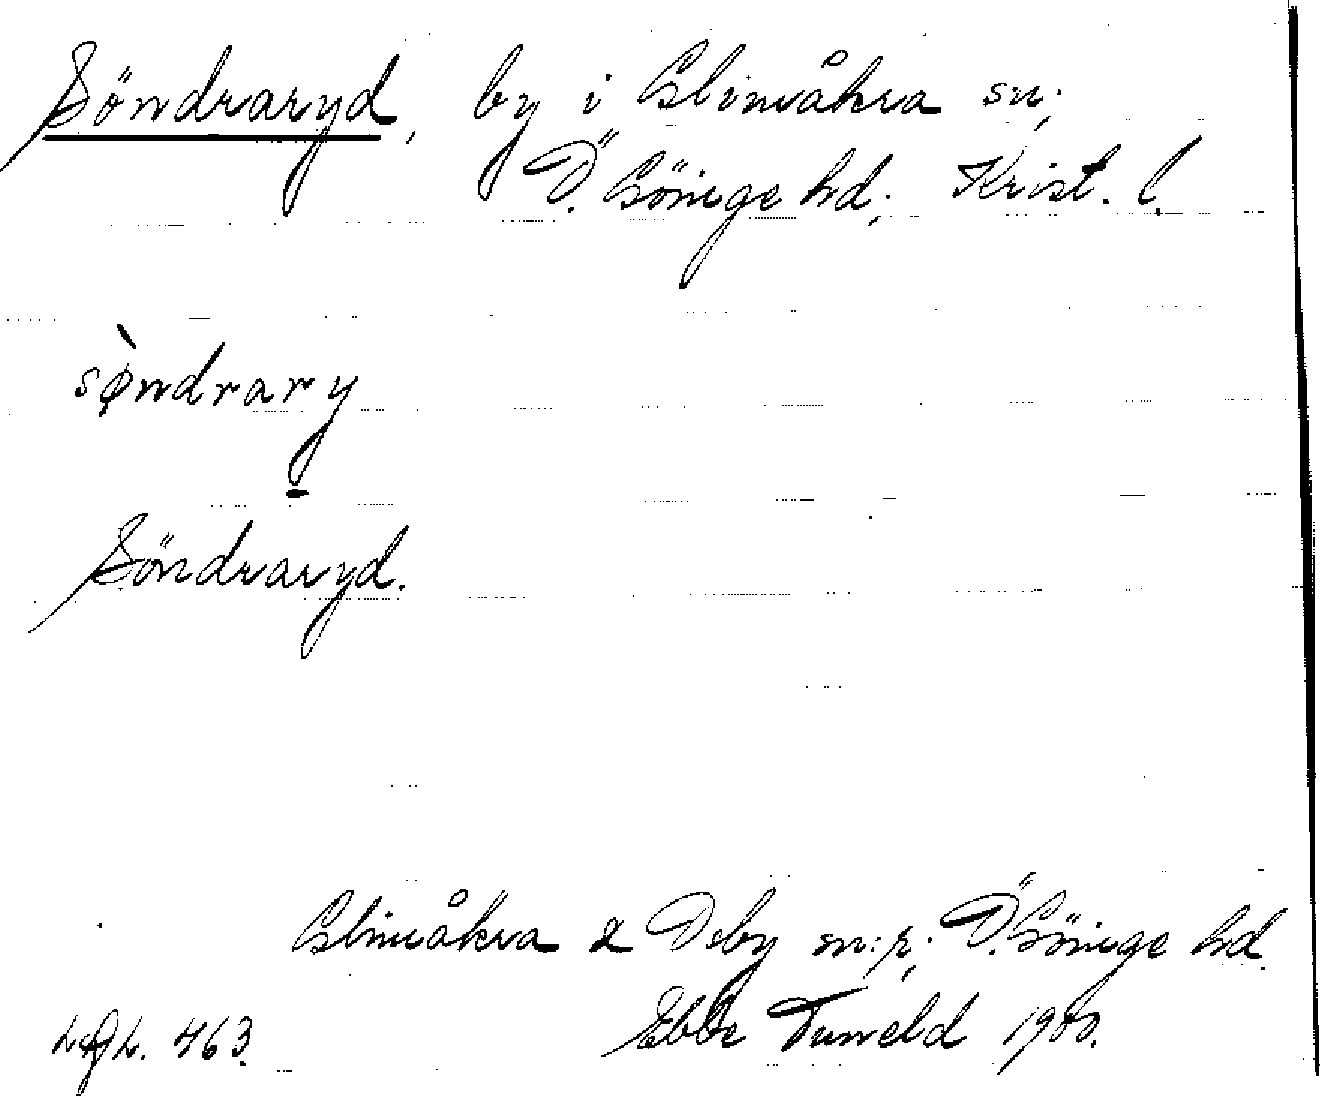 Söndraryd, by i Glimåkra sn;
Ö. Göinge hd; Krist. l.
sø̀ndrary
Söndraryd.
Glimåkra & Örby sn:r; Ö. Göinge hd.
463. Ebbe Tuneld 1900.